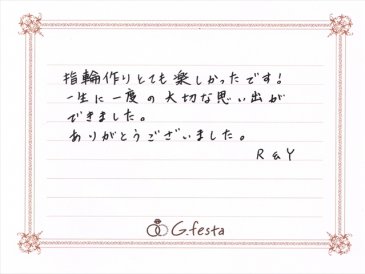 指輪作りとても楽しかったです!
一生に一度の大切な思い出が
できました。
ありがとうございました。
R & Y
G.festa